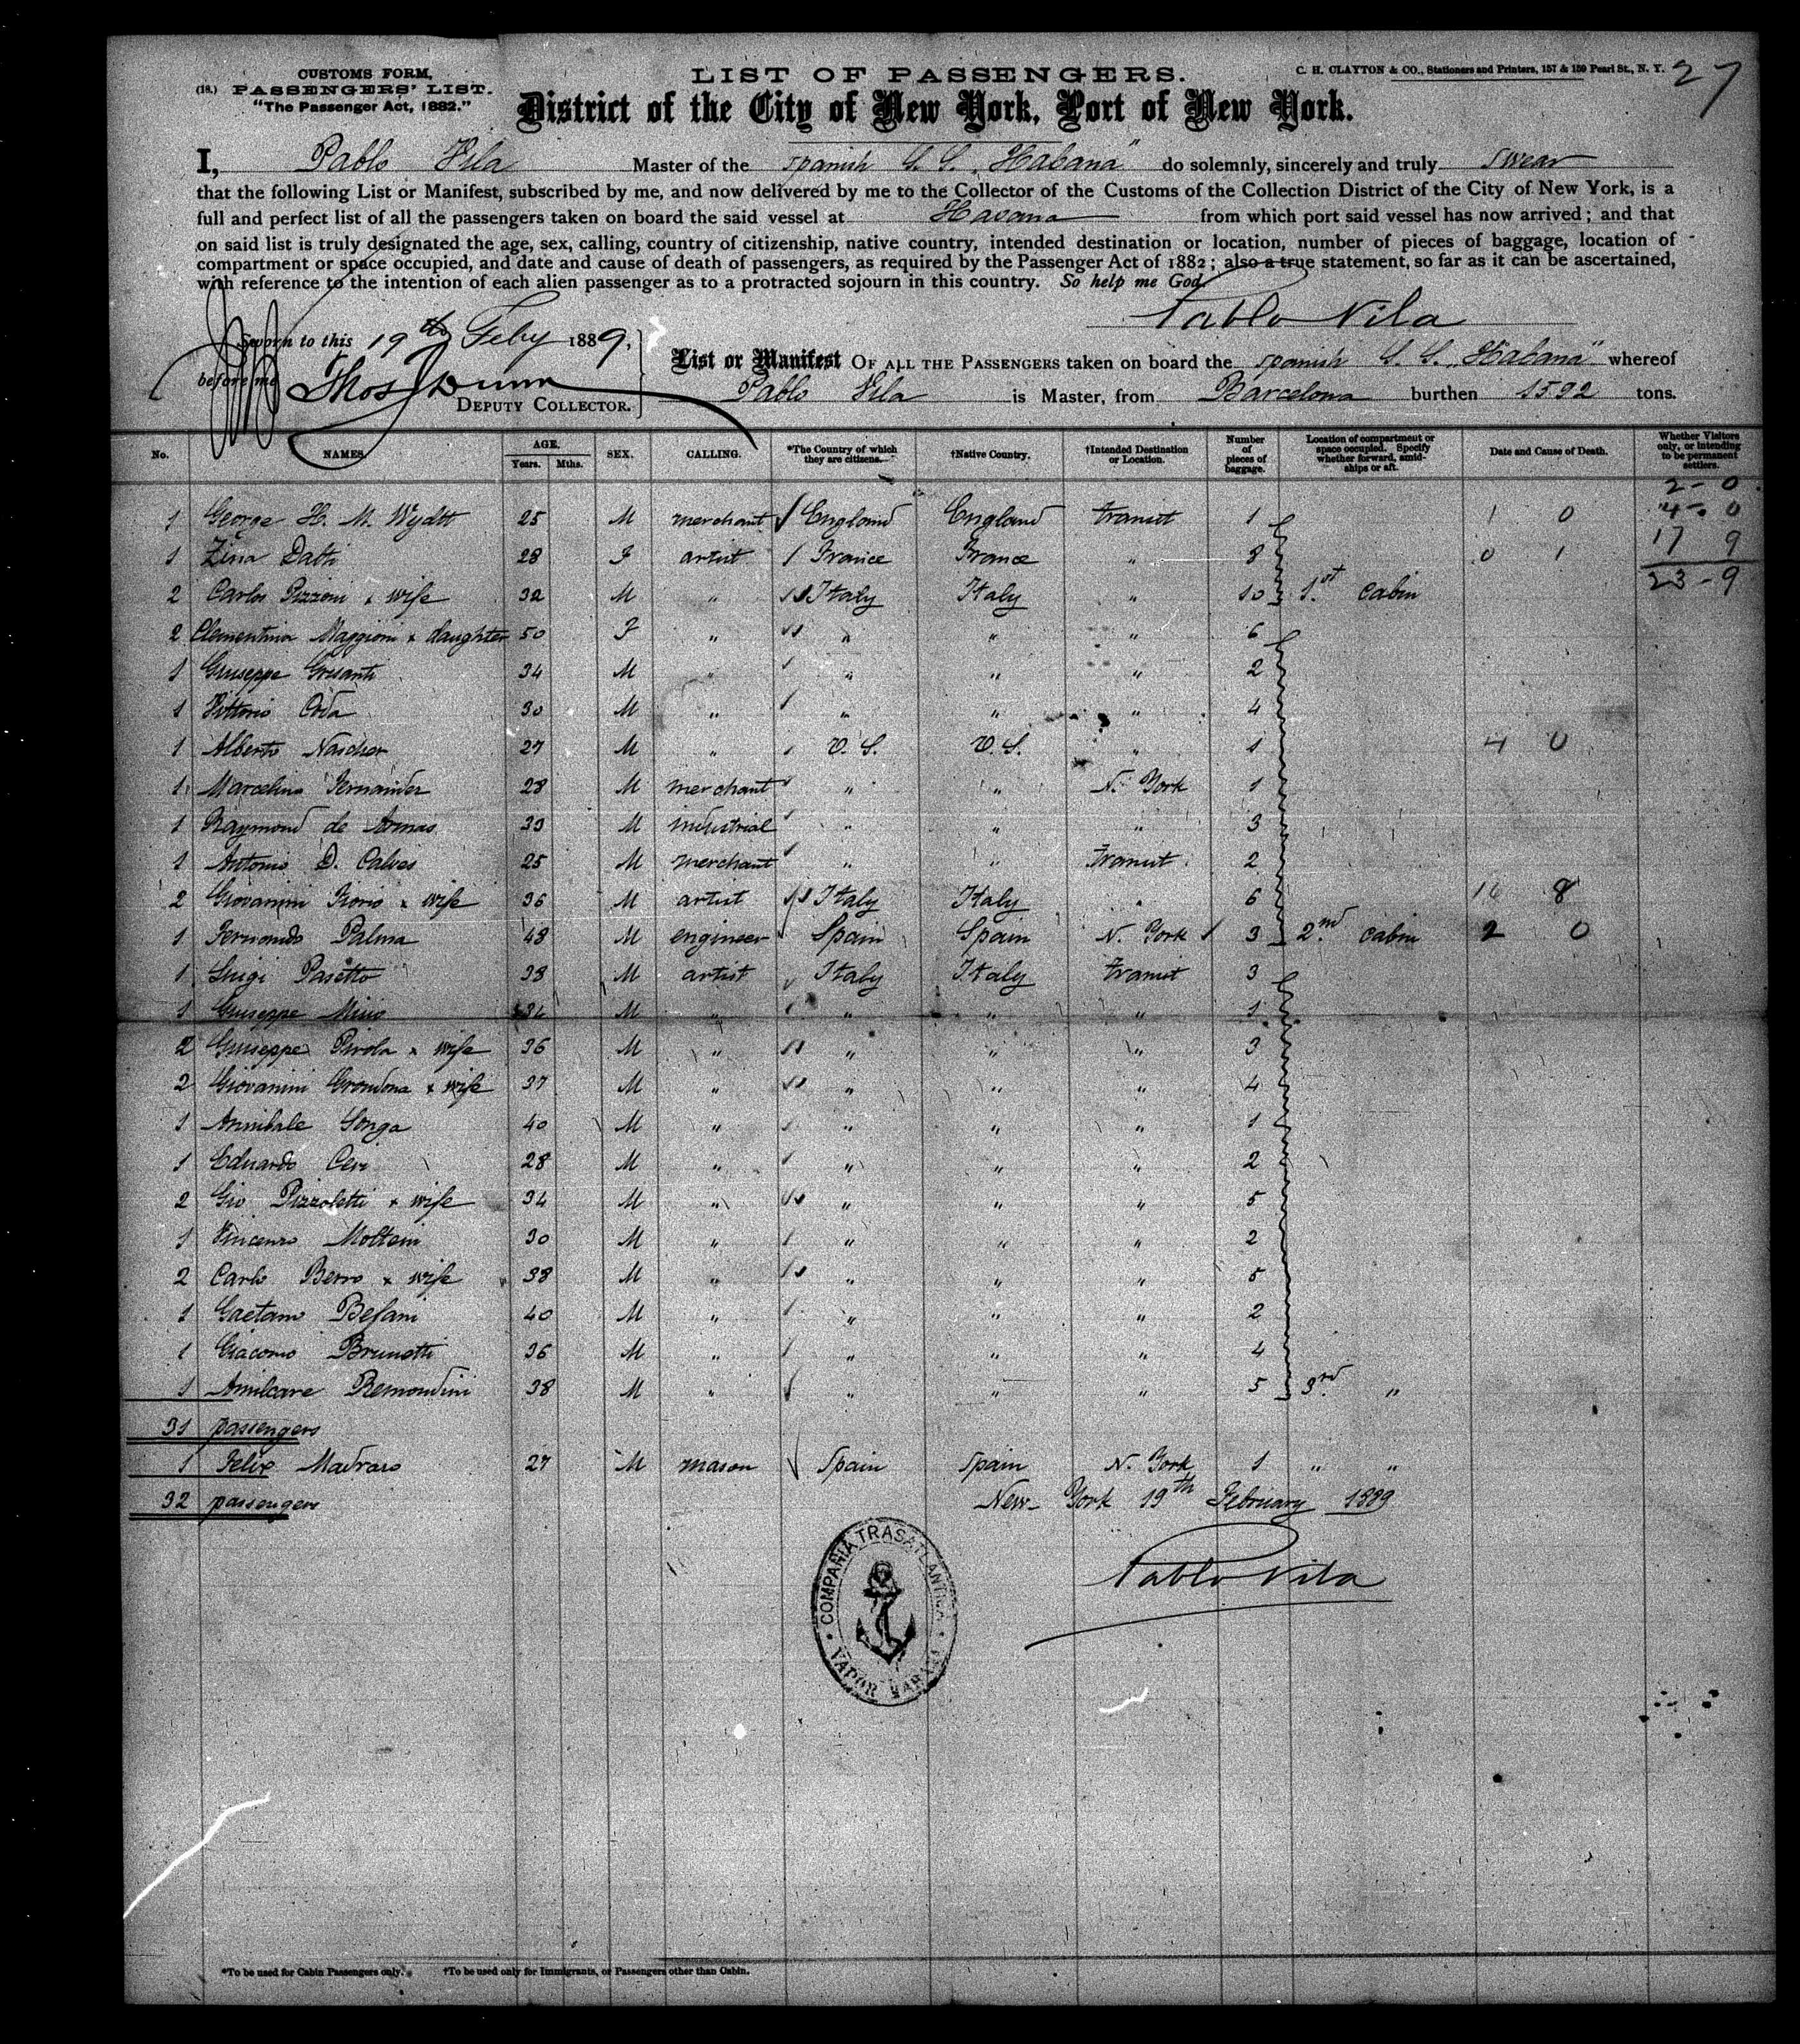 27
CUSTOMS FORM,
(18.) PASSENGERS' LIST.
"The Passenger Act, 1882."
LIST OF PASSENGERS.
C. H. CLAYTON & CO., Stationers and Printers, 157 & 159 Pearl St., N. Y.
District of the City of New York, Port of New York.
I, Pablo Vila Master of the spanish S. S. "Habana" do solemnly, sincerely and truly swear
that the following List or Manifest, subscribed by me, and now delivered by me to the Collector of the Customs of the Collection District of the City of New York, is a
full and perfect list of all the passengers taken on board the said vessel at Havana from which port said vessel has now arrived; and that
on said list is truly designated the age, sex, calling, country of citizenship, native country, intended destination or location, number of pieces of baggage, location of
compartment or space occupied, and date and cause of death of passengers, as required by the Passenger Act of 1882; also a true statement, so far as it can be ascertained,
with reference to the intention of each alien passenger as to a protracted sojourn in this country. So help me God.
Pablo Vila
Sworn to this 19th Feby 1889,
before me Thos Dunn
DEPUTY COLLECTOR.
List or Manifest OF ALL THE PASSENGERS taken on board the spanish S. S. "Habana" whereof
Pablo Vila is Master, from Barcelona burthen 1592 tons.
No. NAMES. AGE. Years. Mths. SEX. CALLING. *The Country of which they are citizens. †Native Country. †Intended Destination or Location. Number of pieces of baggage. Location of compartment or space occupied. Specify whether forward, amidships or aft. Date and Cause of Death. Whether Visitors only, or intending to be permanent settlers.
2 - 0
1 George H. M. Wydtt 25 M merchant England England transit 1 1 0 4 - 0
1 Zina Dalti 28 F artist France France " 8 0 1 17 9
2 Carlos Pizzoni & wife 32 M " Italy Italy " 10 1st cabin 23 - 9
2 Clementina Maggioni & daughter 50 F " " " " 6
1 Giuseppe Grisanti 34 M " " " " 2
1 Vittorio Coda 30 M " " " " 4
1 Alberto Nascher 27 M " U. S. U. S. " 1 4 0
1 Marcelino Fernandez 28 M merchant " " N. York 1
1 Raymond de Armas 33 M industrial " " " 3
1 Antonio D. Calves 25 M merchant " " transit 2
2 Giovanini Fiorio & wife 36 M artist Italy Italy " 6 16 8
1 Fernando Palma 48 M engineer Spain Spain N. York 3 2nd cabin 2 0
1 Luigi Pasetto 38 M artist Italy Italy transit 3
1 Giuseppe 34 M " " " " 1
2 Giuseppe Pirola & wife 36 M " " " " 3
2 Giovanini Grondona & wife 37 M " " " " 4
1 Annibale Songa 40 M " " " " 1
1 Eduardo Ceri 28 M " " " " 2
2 Gio Pizzoletti & wife 34 M " " " " 5
1 Vincenzo Molteni 30 M " " " " 2
2 Carlo Berro & wife 38 M " " " " 5
1 Gaetano Befani 40 M " " " " 2
1 Giacomo Brunetti 36 M " " " " 4
1 Amilcare Remondini 38 M " " " " 5 3rd "
31 passengers
1 Felix Madrazo 27 M mason Spain Spain N. York 1 " "
32 passengers
New York 19th February 1889
Pablo Vila
COMPAÑIA TRASATLANTICA
VAPOR HABANA
*To be used for Cabin Passengers only. †To be used only for Immigrants, or Passengers other than Cabin.